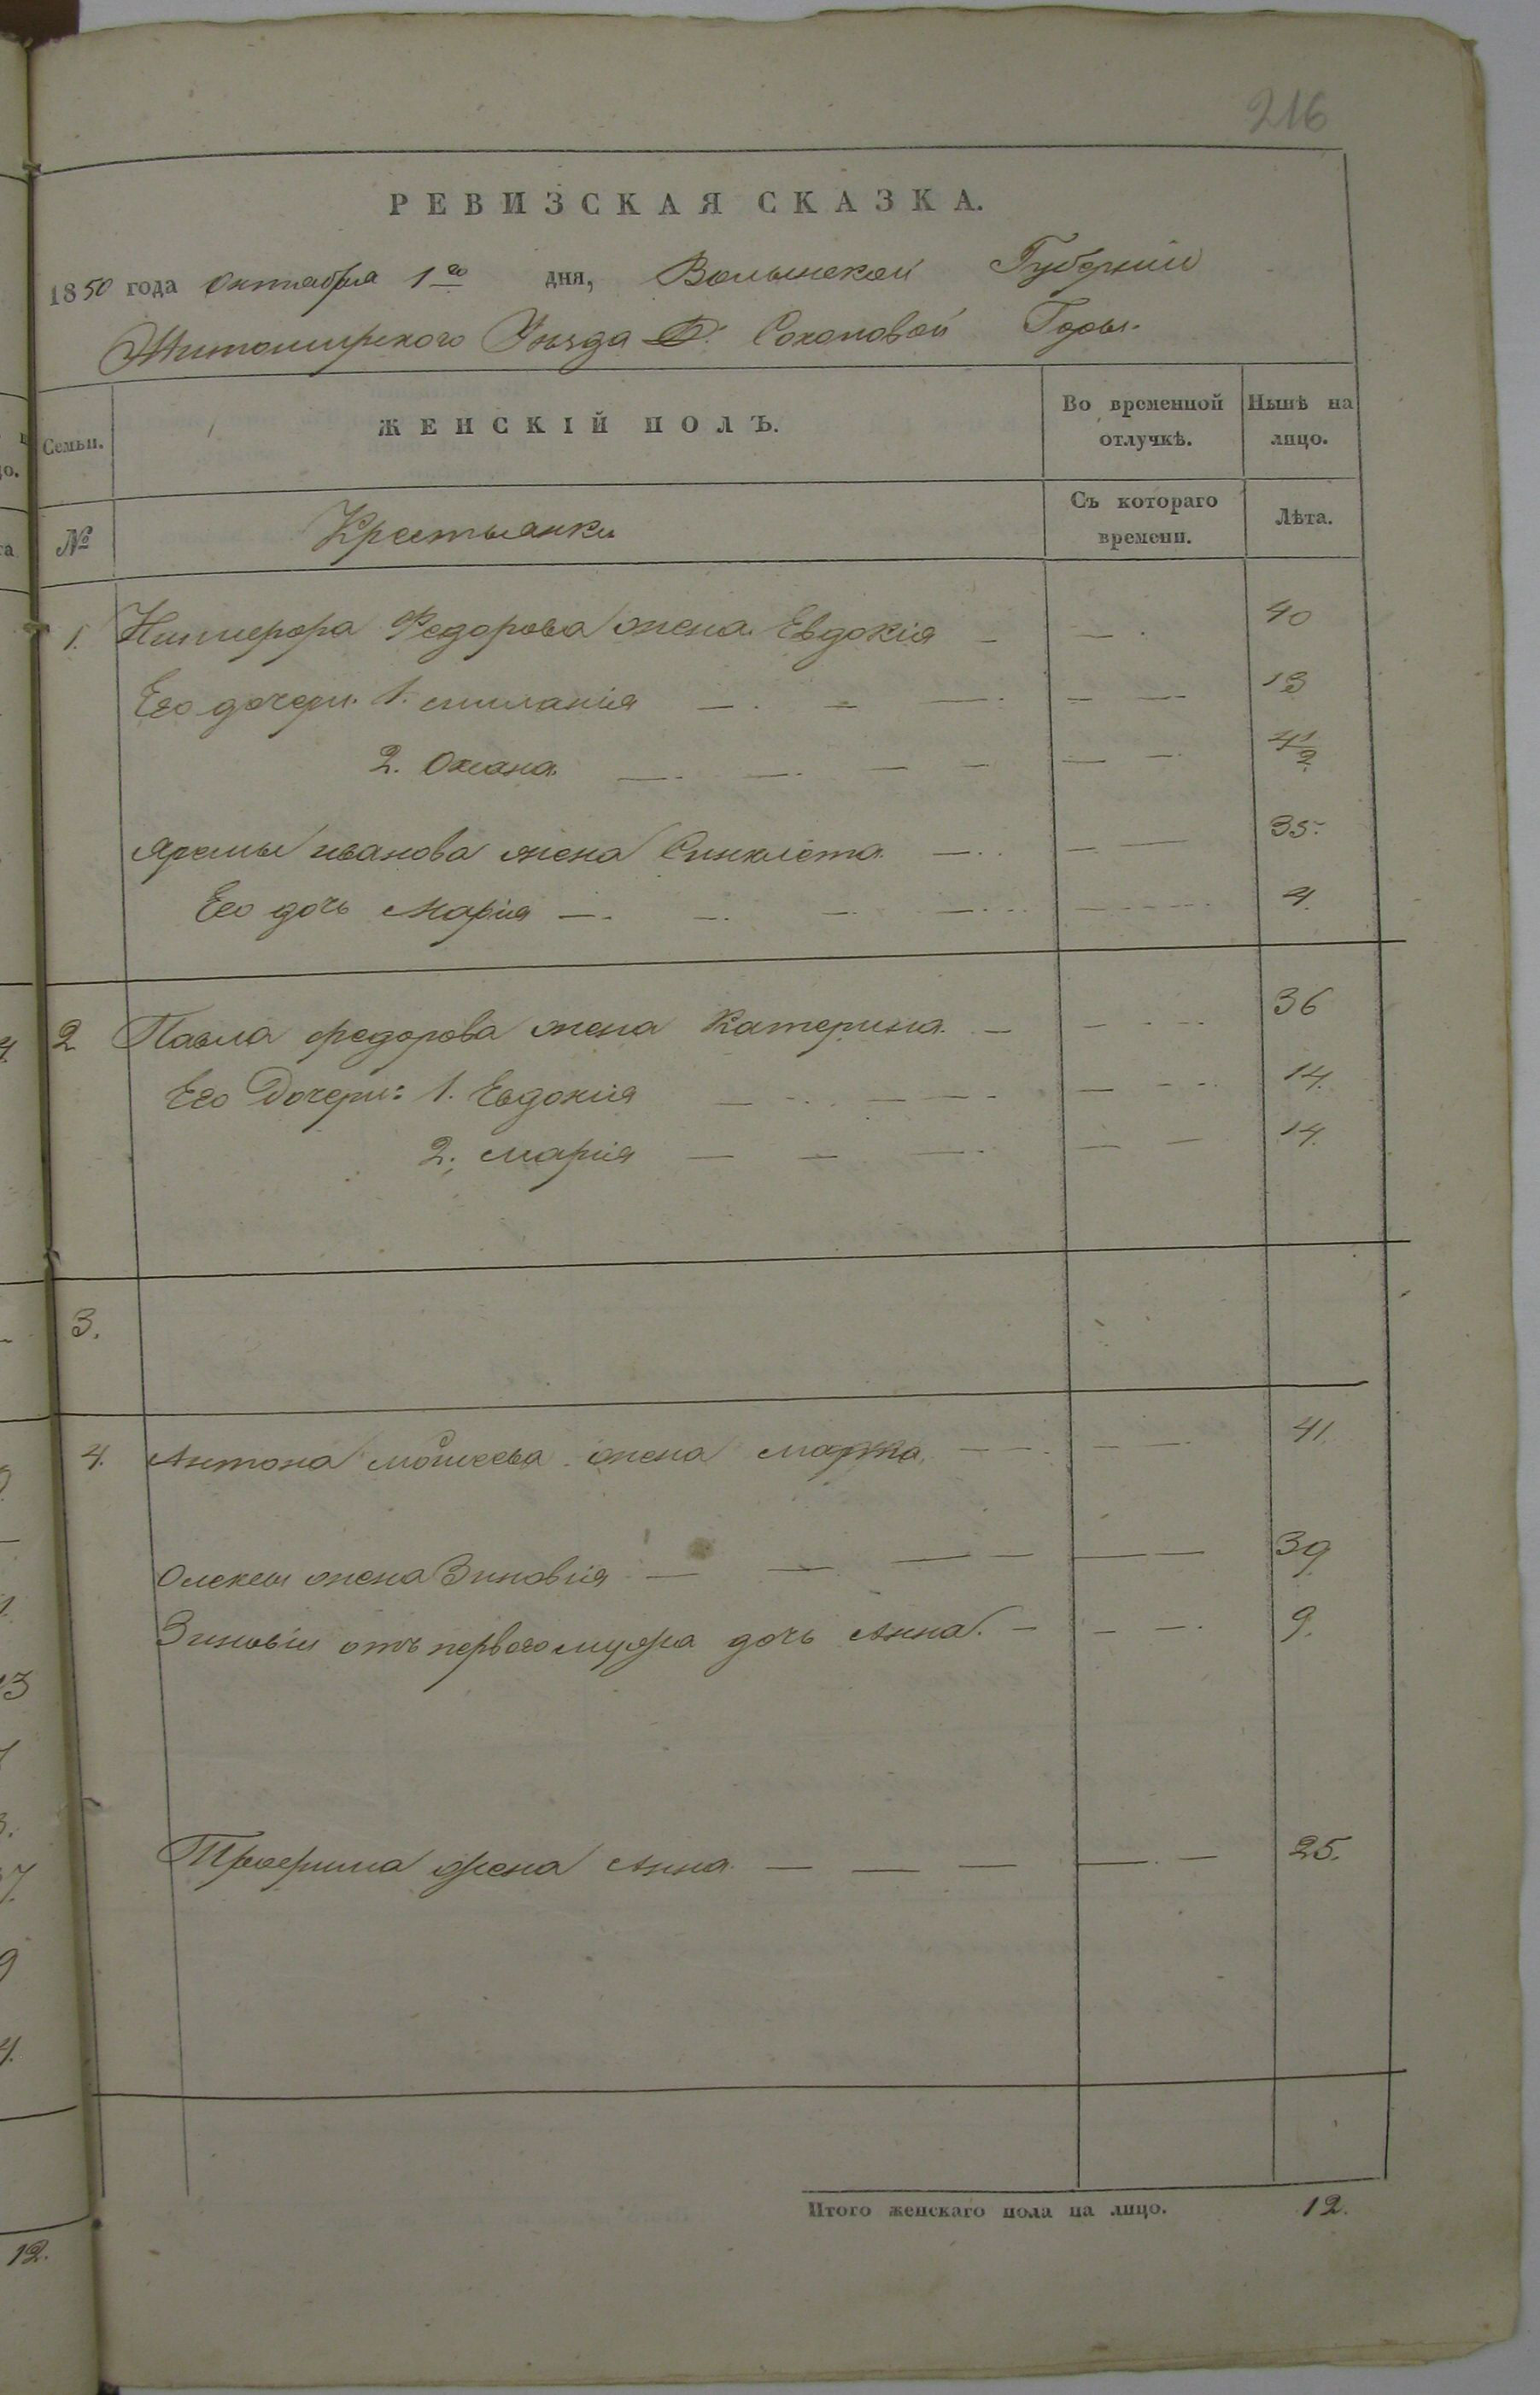 216
РЕВИЗСКАЯ СКАЗКА.
1850 года Октября 1го дня, Волынской Губерніи
Житомирского Уезда Д. Соколовой Горы.
Семьи. ЖЕНСКІЙ ПОЛЪ. Во временной отлучкѣ. Нынѣ на лицо.
№ Крестьянки Съ котораго времени. Лѣта.
1. Никифора Федорова жена Евдокія 40
Его дочери. 1. мпланія 13
2. Оксана 4 1/2
Яремы иванова жена Синклета 35.
Его дочь Марія 4.
2 Павла федорова жена Катерина. 36
Его Дочери: 1. Евдокия 14.
2. марія 14.
3.
4. Антона жена марта. 41.
Олексы жена Зиновія 39.
Зиновіи отъ первого мужа дочь Анна. 9.
Трофима жена Анна 25.
Итого женскаго пола на лицо. 12.
12.